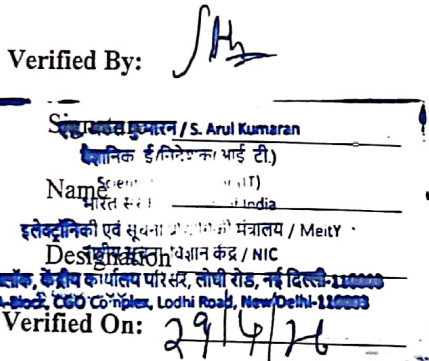 Verified By:
कुमारन / S. Arul Kumaran
वैज्ञानिक ई/निदेशक(आई टी.)
Name
भारत India
इलेक्ट्रॉनिकी एवं सूचना मंत्रालय / MeitY
Designation विज्ञान केंद्र / NIC
ब्लॉक, केंद्रीय कार्यालय परिसर, लोधी रोड, नई दिल्ली-110003
A-Block, CGO Complex, Lodhi Road, New Delhi-110003
Verified On: 29/4/26